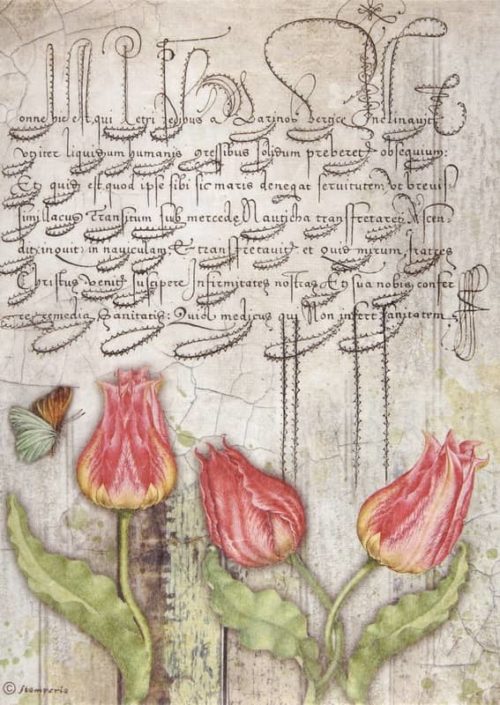 onne hic est, qui Petri gressibus a Marinor Vertice Inclinavit
Vniter liquidum humanis gressibus solidum preberet obsequium:
Et quid est quod ipse sibi sic maris denegat servitutem, Vt brevis
simi lacus Transitum sub mercede Nauticha transfretaret, Ascen
dit, inquit, in naviculam, Et transfretavit, et Quid mirum, fratres
Christus Venit suscipere Infirmitates nostras, Et sua nobis confer
re remedia Sanitatis: Quia medicus qui Non infert sanitatem
© Stamperia